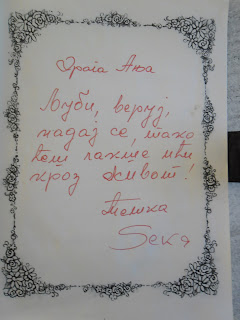 Драга Ана
Љуби, веруј,
надај се, тако
ћеш лакше ићи
кроз живот!
Тетка
Seka